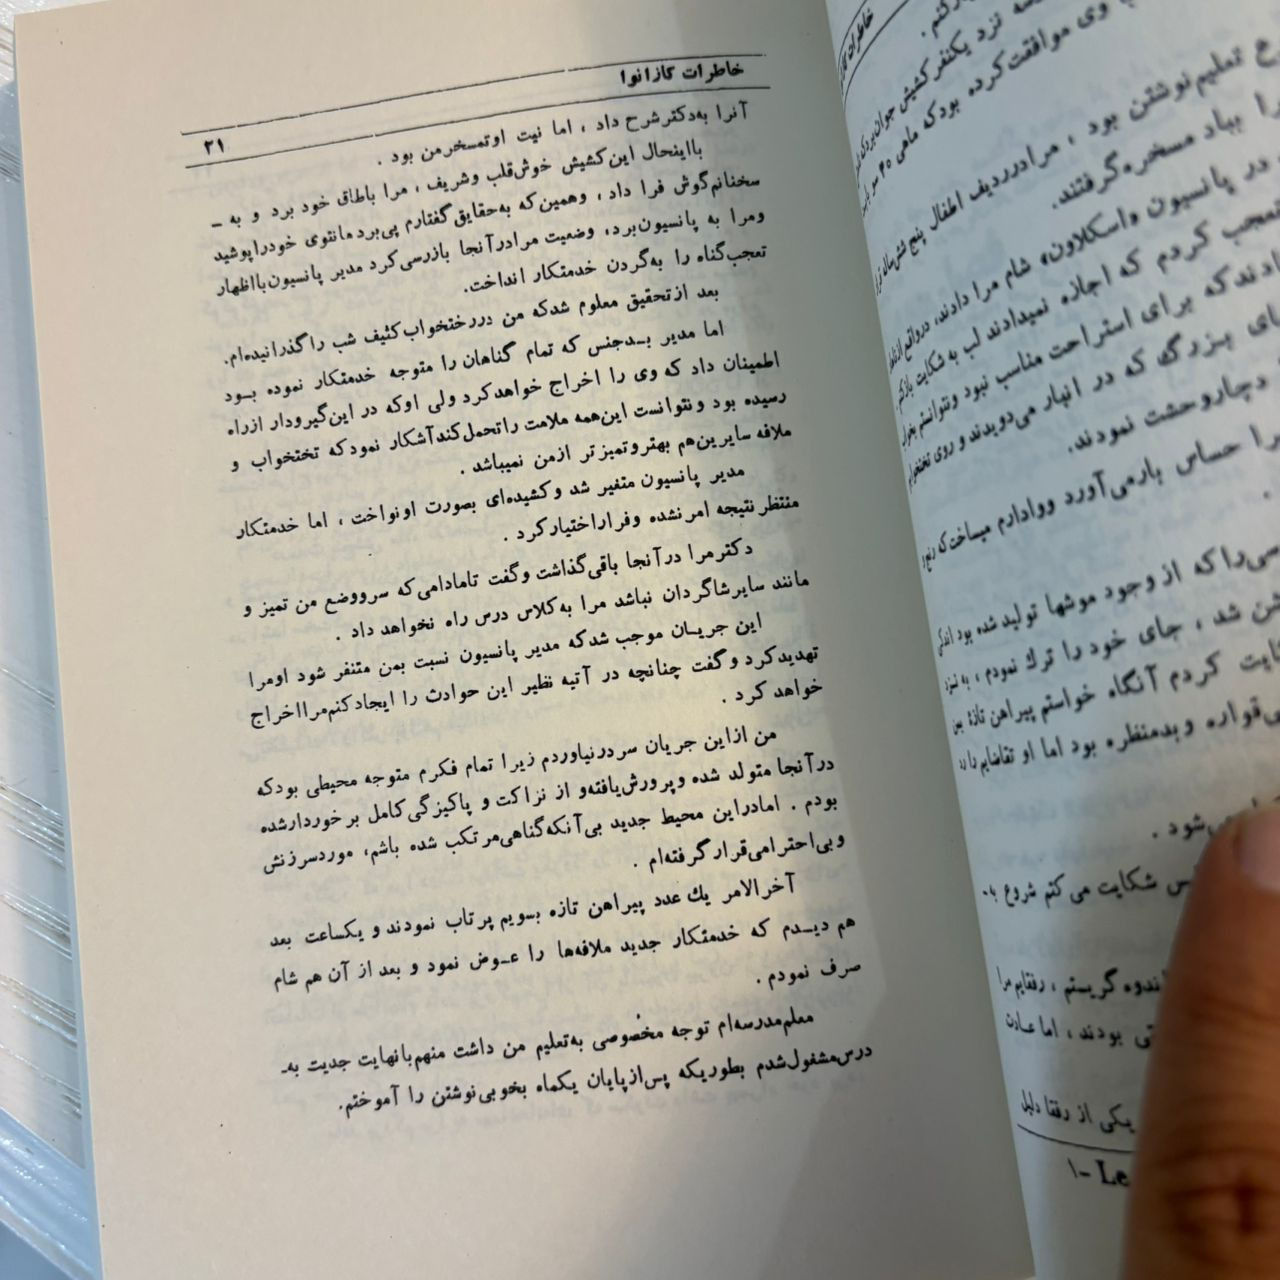 خاطرات کازانوا
۲۱
آنرا به‌دکترشرح داد ، اما نیت اوتمسخرمن بود .
بااینحال این‌کشیش خوش‌قلب وشریف ، مرا باطاق خود برد و به –
سخنانم‌گوش فرا داد ، وهمین‌که به‌حقایق‌گفتارم پی‌برد مانتوی خودراپوشید
ومرا به پانسیون‌برد، وضعیت مرادرآنجا بازرسی‌کرد مدیر پانسیون‌بااظهار
تعجب‌گناه را به‌گردن خدمتکار انداخت.
بعد ازتحقیق معلوم شدکه من دررختخواب‌کثیف شب راگذرانیده‌ام.
اما مدیر بـدجنس که تمام گناهان را متوجه خدمتکار نموده بـود
اطمینان داد که وی را اخراج خواهدکرد ولی اوکه در این‌گیرودار ازراه
رسیده بود ونتوانست این‌همه ملامت راتحمل‌کندآشکار نمودکه تختخواب و
ملافه سایرین‌هم بهتروتمیزتر ازمن نمیباشد .
مدیر پانسیون متغیر شد وکشیده‌ای بصورت اونواخت ، اما خدمتکار
منتظرنتیجه امرنشده وفراراختیارکرد .
دکترمرا درآنجا باقی‌گذاشت وگفت تامادامی‌که سرووضع من تمیز و
مانند سایرشاگردان نباشد مرا به‌کلاس درس راه نخواهد داد .
این جریـان موجب شدکه مدیر پانسیون نسبت بمن متنفر شود اومرا
تهدیدکرد وگفت چنانچه در آتیه نظیر این حوادث را ایجادکنم‌مرااخراج
خواهد کرد .
من ازاین جریان سردرنیاوردم زیرا تمام فکرم متوجه محیطی بودکه
درآنجا متولد شده وپرورش‌یافته‌و از نزاکت و پاکیزگی‌کامل برخوردارشده
بودم . امادراین محیط جدید بی‌آنکه‌گناهی‌مرتکب شده باشم، موردسرزنش
وبی‌احترامی‌قرارگرفته‌ام .
آخرالامر یك عدد پیراهن تازه بسویم پرتاب نمودند و یکساعت بعد
هم دیـدم که خدمتکار جدید ملافه‌ها را عـوض نمود و بعد از آن هم شام
صرف نمودم .
معلم‌مدرسه‌ام توجه مخصوصی به‌تعلیم من داشت منهم‌بانهایت جدیت به-
درس‌مشغول‌شدم بطوریکه پس‌ازپایان یکماه بخوبی‌نوشتن را آموختم.
نزد یکنفرکشیش جوان
وی موافقت‌کرده بودکه ماهی ۴۰
تعلیم‌نوشتن بود ، مرادرردیف اطفال پنج شش‌ساله
را بباد مسخره‌گرفتند.
در پانسیون واسکلاون، شام مرا دادند،
تعجب کردم که اجازه نمیدادند لب به شکایت بازکنم
دادندکه برای استراحت مناسب نبود ونتوانستم
های بـزرگ که در انبار می‌دویدند و روی تختخوابم
دچاروحشت نمودند.
را حساس بارمی‌آورد ووادارم میساخت‌که
که از وجود موشها تولید شده بود اندکی
شد ، جای خود را ترك نمودم ، به نزد
شکایت کردم آنگاه خواستم پیراهن تازهٔ
قواره وبدمنظره بود اما او تقاضایم
می‌شود .
شکایت می کنم شروع به-
اندوه گریستم ، رفقایم مرا
بودند ، اما عادت
یکی از رفقا دلیل
۱- Le